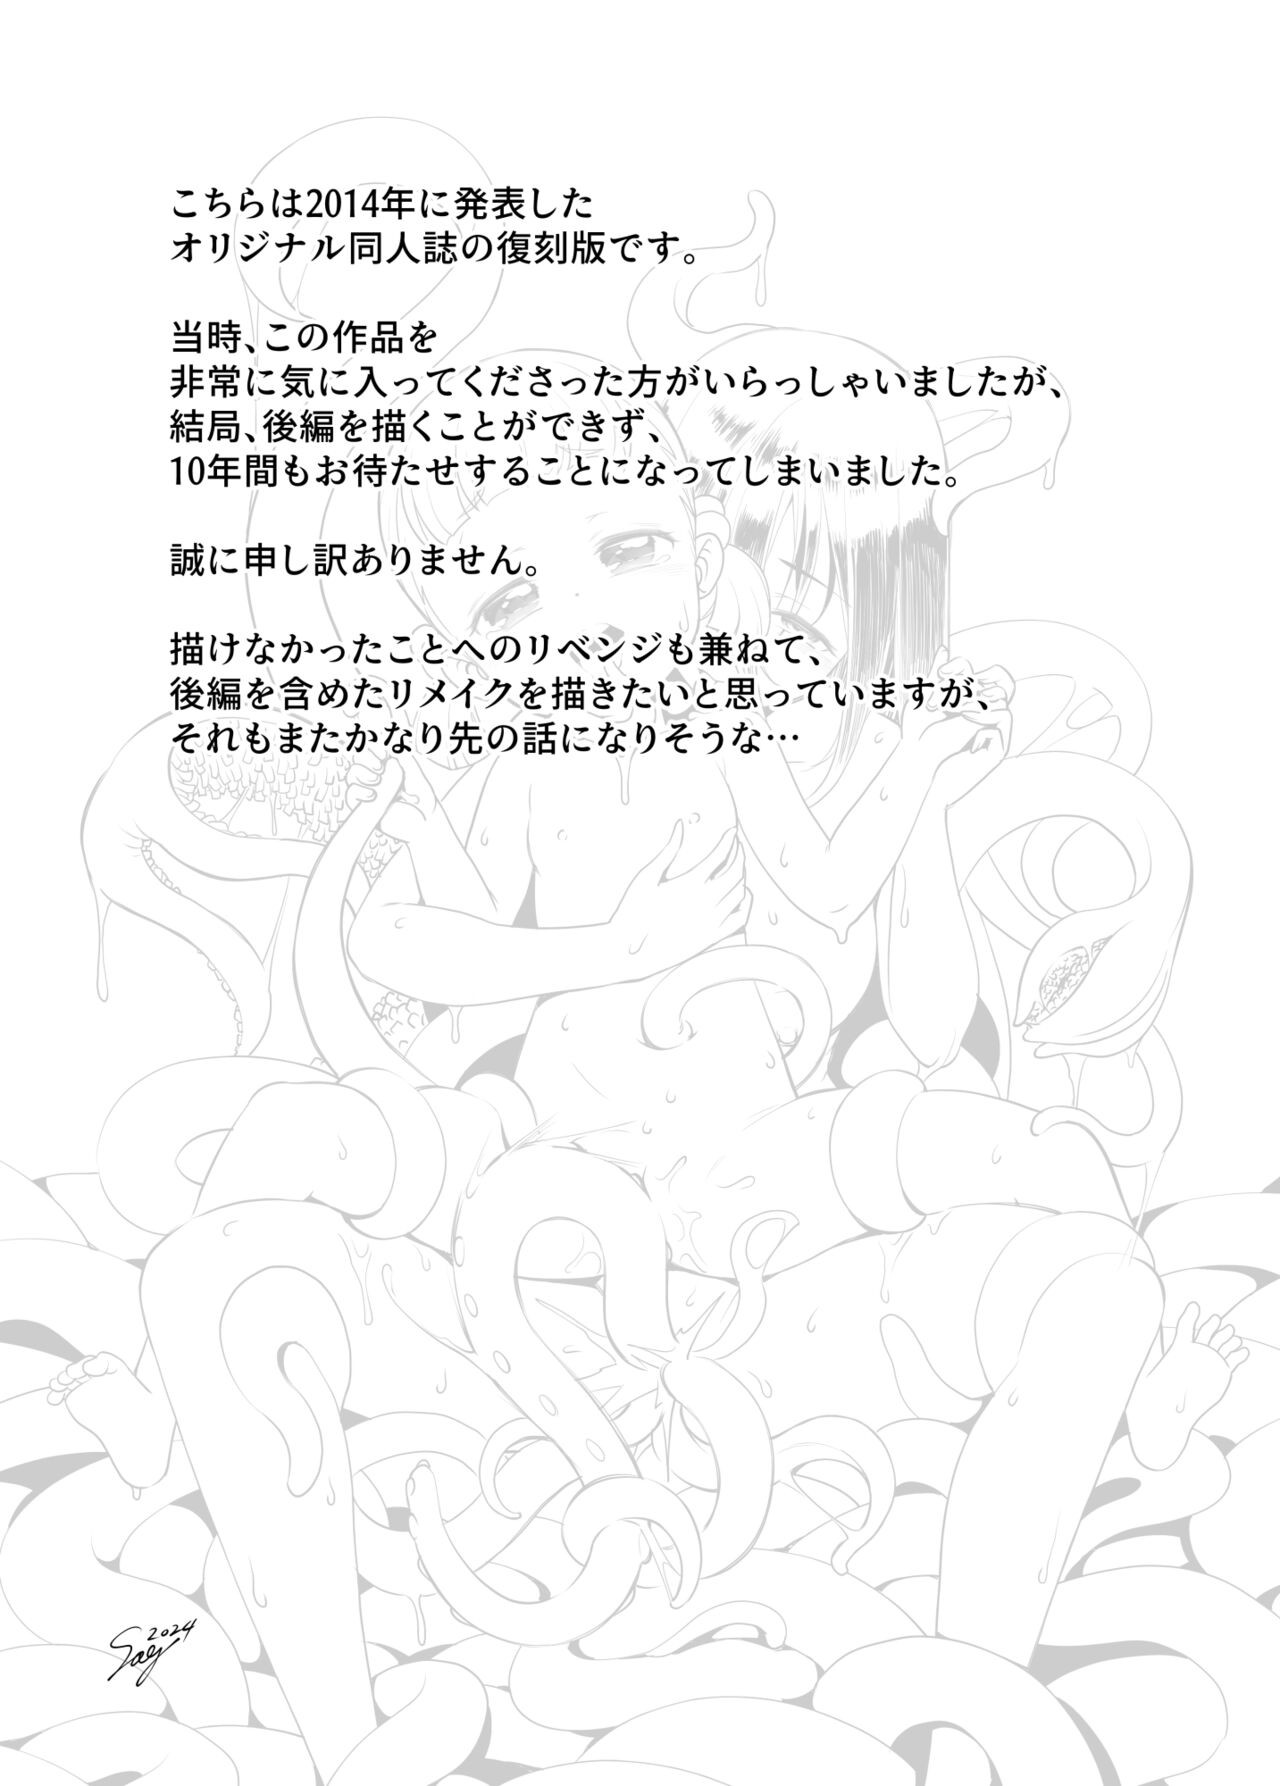 こちらは2014年に発表した
オリジナル同人誌の復刻版です。
当時、この作品を
非常に気に入ってくださった方がいらっしゃいましたが、
結局、後編を描くことができず、
10年間もお待たせすることになってしまいました。
誠に申し訳ありません。
描けなかったことへのリベンジも兼ねて、
後編を含めたリメイクを描きたいと思っていますが、
それもまたかなり先の話になりそうな…
2024